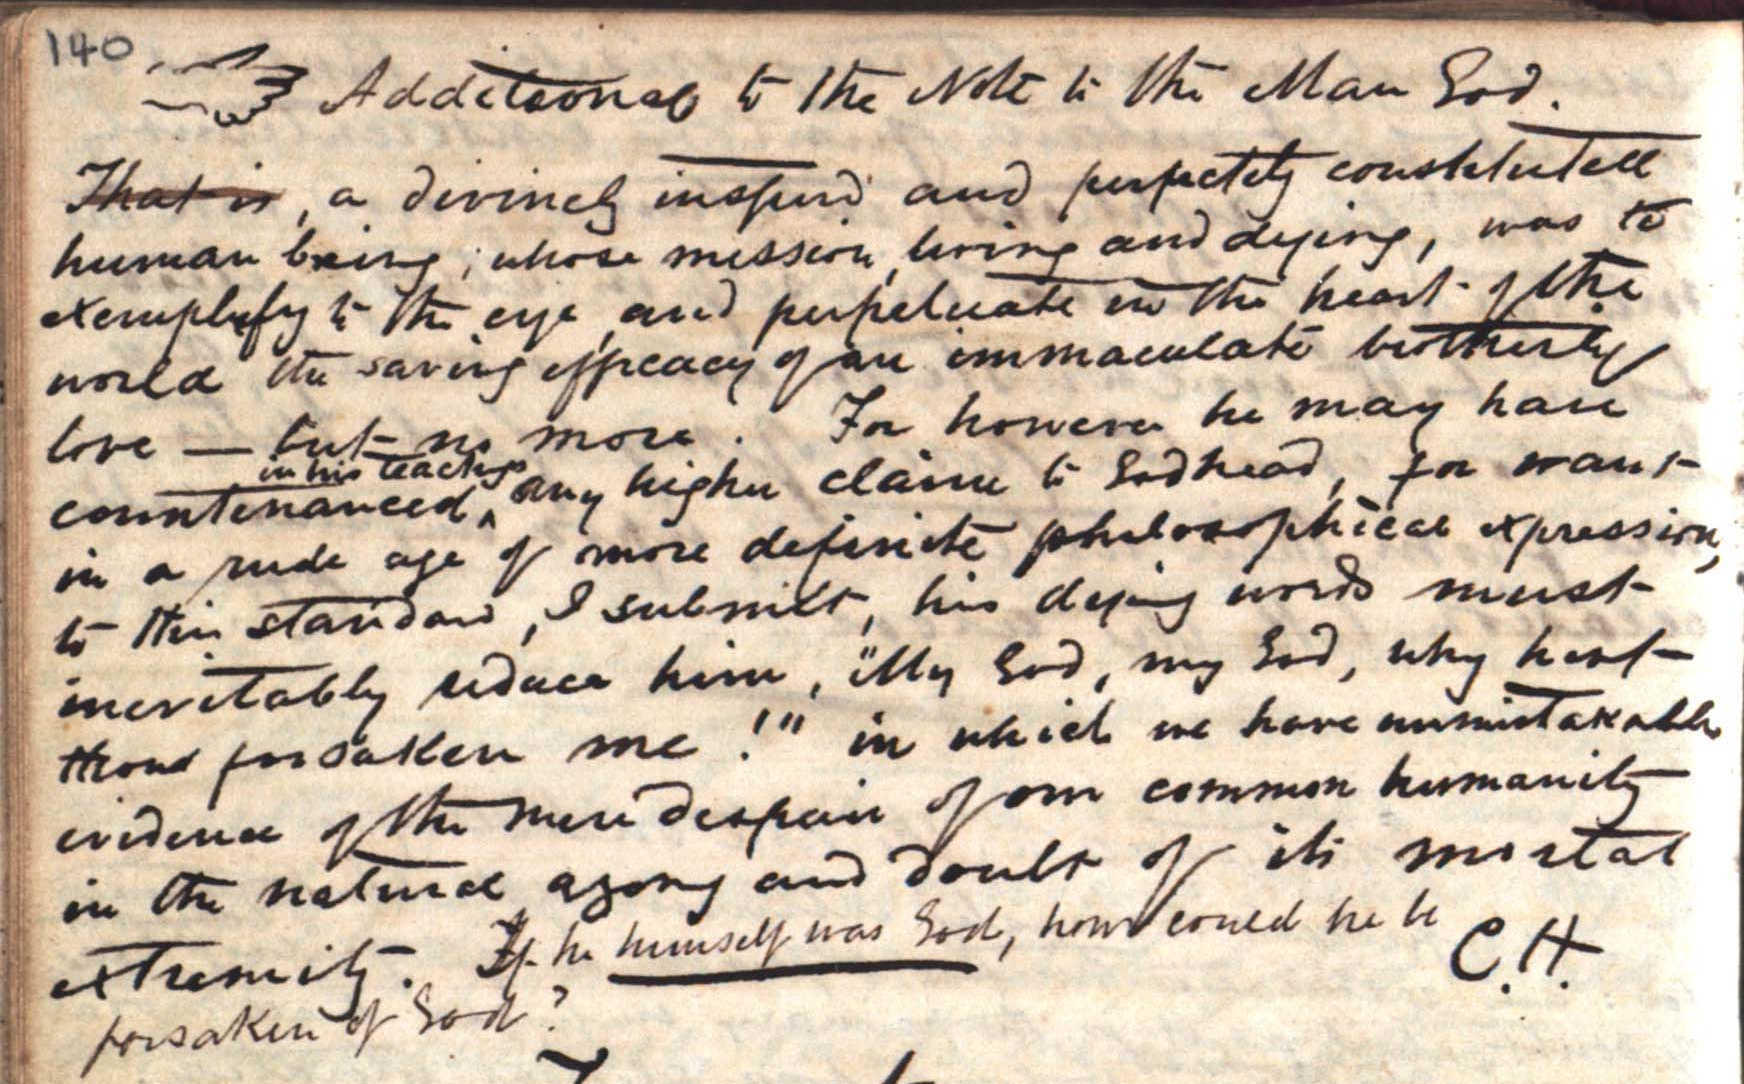 140
Additional to the Note to the Man God.
That is, a divinely inspired and perfectly constituted
human being; whose mission, living and dying, was to
exemplify to the eye, and perpetuate in the heart of the
world the saving efficacy of an immaculate brotherly
love — but no more. For however he may have
in his teachings
countenanced, any higher claim to Godhead, for want
in a rude age of more definite philosophical expression,
to this standard, I submit, his dying words must
inevitably reduce him, "My God, my God, why hast
thou forsaken me!" in which we have unmistakable
evidence of the mere despair of our common humanity
in the natural agony and doubt of its mortal
extremity. If he himself was God, how could he be
forsaken of God?
C.H.